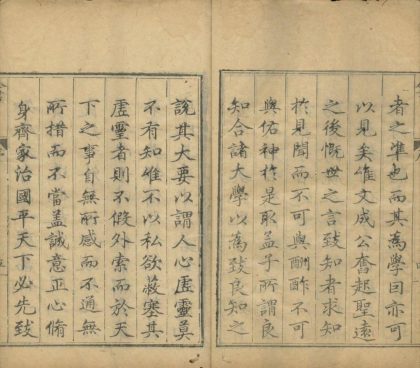 者之準也而其為學因亦可
以見矣惟文成公奮起聖遠
之後慨世之言致知者求知
於見聞而不可與酬酢不可
與佑神於是取孟子所謂良
知合諸大學以為致良知之
說其大要以謂人心虛靈莫
不有知惟不以私欲蔽塞其
虛靈者則不假外索而於天
下之事自無所感而不通無
所措而不當蓋誠意正心脩
身齊家治國平天下必先致